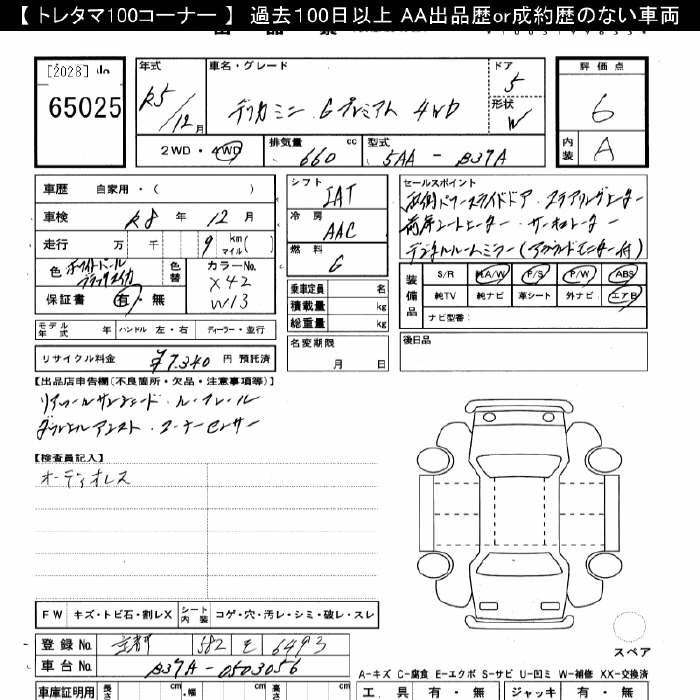 【 トレタマ100コーナー 】 過去100日以上 AA出品歴or成約歴のない車両
[2028]
65025
年式
R5/12月
車名・グレード
デリカミニ Gプレミアム 4WD
ドア
5
形状
W
評価点
6
内装
A
2WD・4WD
排気量
660 cc
型式
5AA - B37A
車歴 自家用・( )
車検 R8年 12月
走行 万 千 9 km(マイル)
色 ホワイトパール ブラックマイカ
色替
カラーNo.
X42
W13
保証書 有・無
シフト
IAT
冷房
AAC
燃料
G
乗車定員 名
積載量 kg
総重量 kg
セールスポイント
両側パワースライドドア・ステアリングヒーター
前席シートヒーター・サーキュレーター
デジタルルームミラー(アラウンドモニター付)
装備品
S/R A/W P/S P/W ABS
純TV 純ナビ 革シート 外ナビ エアB
ナビ型番:
モデル年式 年 ハンドル 左・右 ディーラー・並行
リサイクル料金 ¥7,340 円 預託済
名変期限
月 日
後日品
【出品店申告欄(不良箇所・欠品・注意事項等)】
リアロールサンシェード・ルーフレール
ダウンヒルアシスト・コーナーセンサー
【検査員記入】
オーディオレス
FW キズ・トビ石・割レX シート内装 コゲ・穴・汚レ・シミ・破レ・スレ
スペア
登録No. 京都 582 モ 6493
車台No. B37A-0503056
A-キズ C-腐食 E-エクボ S-サビ U-凹ミ W-補修 XX-交換済
車庫証明用 長さ cm 幅 cm 高さ cm
工具 有・無 ジャッキ 有・無